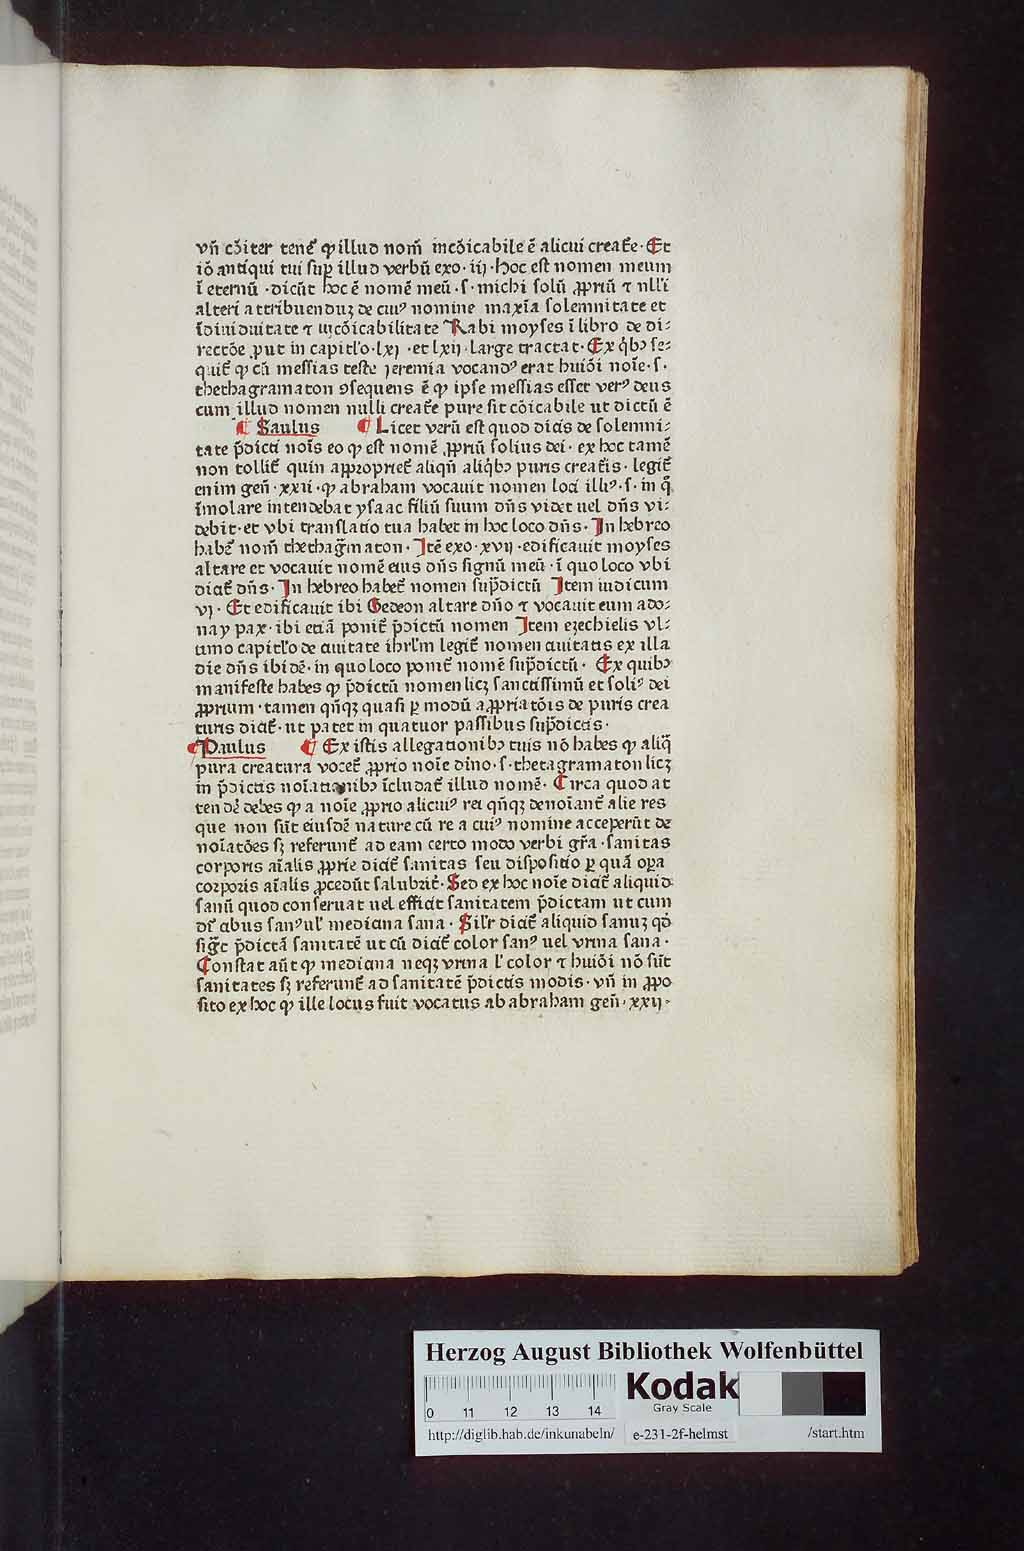 vn̄ cōiter tenet᷑ ꝙ illud nom̄ incōicabile ē alicui creat᷑e · Et
iō antiqui tui suꝑ illud verbū exo · iij · Hoc est nomen meum
ī eternū · dicūt hoc ē nomē meū · s · michi solū ꝓpriū ⁊ nlli
alteri attribuenduꝫ de cuiꝰ nomine maxīa solemnitate et
īdiuiduitate ⁊ īcōicabilitate Rabi moyses ī libro de di⸗
rectōe ꝓut in capitl'o · lxj · et lxij · large tractat · Ex q̄bꝫ se⸗
quit᷑ ꝙ cū messias teste jeremia vocandꝰ erat huiōi noīe · s ·
thethagramaton ꝯsequens ē ꝙ ipse messias esset verꝰ deus
cum illud nomen nulli creat᷑e pure sit cōicabile ut dictū ē
¶ Saulus ¶ Licet verū est quod dicis de solemni⸗
tate p̄dicti noīs eo ꝙ est nomē ꝓpriū solius dei · ex hoc tamē
non tollit᷑ quin appropriet᷑ aliqn̄ aliq̄bꝫ puris creat᷑is · legit᷑
enim gen̄ · xxii · ꝙ abraham vocavit nomen loci illiꝰ · s · in q̄
īmolare intendebat ysaac filiū suum dn̄s videt uel dn̄s vi⸗
debit · et vbi translatio tua habet in hoc loco dn̄s · In hebreo
habet᷑ nom̄ thethag̃maton · Itē exo · xvij · edificauit moyses
altare et vocauit nomē eius dn̄s signū meū · ī quo loco vbi
dicit᷑ dn̄s · In hebreo habet᷑ nomen sup̄dictū Item iudicum
vj · Et edificauit ibi Gedeon altare dn̄o ⁊ vocauit eum ado⸗
nay pax · ibi etiā ponit᷑ p̄dictū nomen Item ezechielis vl⸗
timo capitl'o de ciuitate ihrl'm legit᷑ nomen ciuitatis ex illa
die dn̄s ibidē · in quo loco ponit᷑ nomē sup̄dictū · Ex quibꝫ
manifeste habes ꝙ p̄dictū nomen licꝫ sanctissimū et soliꝰ dei
ꝓprium · tamen qn̄qꝫ quasi ꝑ modū aꝓpriatōis de puris crea
turis dicit᷑ · ut patet in quatuor passibus sup̄dictis ·
¶ Paulus ¶ Ex istis allegationibꝫ tuis nō habes ꝙ aliq̄
pura creatura vocet᷑ ꝓprio noīe diuo · s · thetagramaton licꝫ
in p̄dictis noīationibꝫ īcludat᷑ illud nomē · Circa quod at
tendē debes ꝙ a noīe ꝓprio alicuiꝰ rei qn̄qꝫ denoīant᷑ alie res
que non sūt eiusdē nature cū re a cuiꝰ nomine acceperūt de
noīatōes sꝫ referunt᷑ ad eam certo modo verbi gr̄a · sanitas
corporis aīalis ꝓprie dicit᷑ sanitas seu dispositio ꝑ quā oꝑa
corporis aīalis ꝓcedūt salubrit᷑ · Sed ex hoc noīe dicit᷑ aliquid
sanū quod conseruat uel efficit sanitatem p̄dictam ut cum
dr̄ cibus sanꝰ ul' medicina sana · Sil'r dicit᷑ aliquid sanuꝫ qō
sig̃t p̄dictā sanitatē ut cū dicit᷑ color sanꝰ uel vrina sana ·
Constat aūt ꝙ medicina neqꝫ vrina l' color ⁊ huiōi nō sūt
sanitates sꝫ referunt᷑ ad sanitatē p̄dictis modis · vn̄ in ꝓpo
sito ex hoc ꝙ ille locus fuit vocatus ab abraham gen̄ · xxij ·
Herzog August Bibliothek Wolfenbüttel
0 11 12 13 14
Kodak
Gray Scale
http://diglib.hab.de/inkunabeln/ e-231-2f-helmst /start.htm